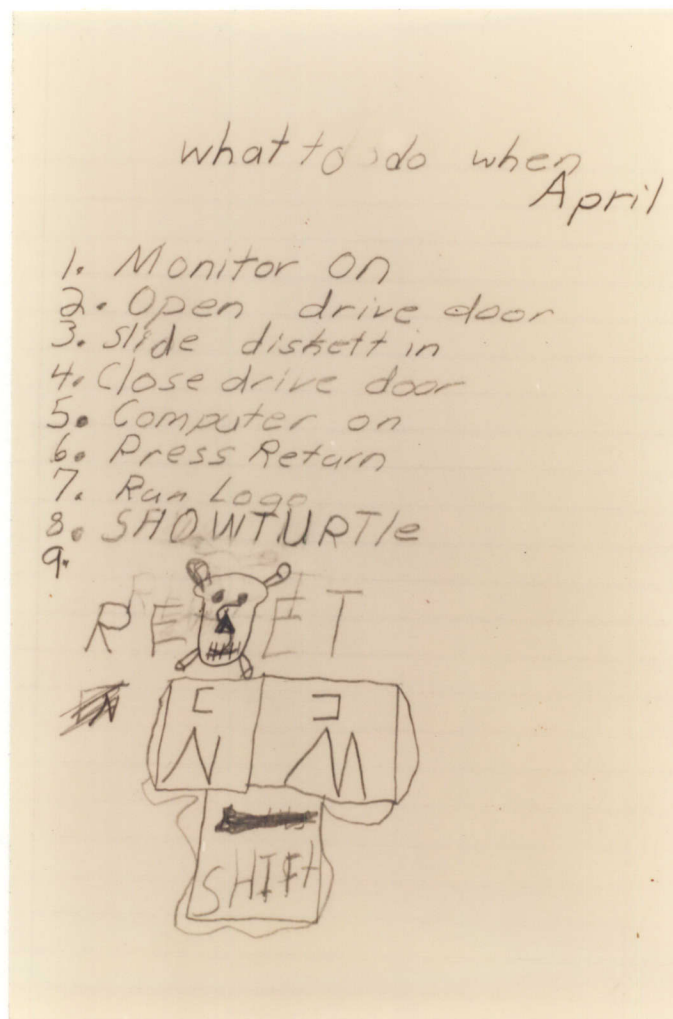 what to do when
April
1. Monitor on
2. Open drive door
3. Slide diskett in
4. Close drive door
5. Computer on
6. Press Return
7. Run Logo
8. SHOWTURTle
9.
RE ET
[ ]
N M
SHIFt